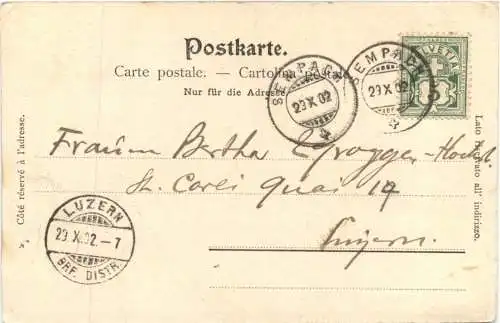 Postkarte.
Carte postale. — Cartolina postale.
Nur für die Adresse.
SEMPACH
29 X 02
SEMPACH
29 X 02
HELVETIA
Côté réservé à l'adresse.
Lato riservato all' indirizzo.
Bertha
St. Carli Quai 19
Luzern.
LUZERN
29 X 02 - 7
BRF. DISTR.